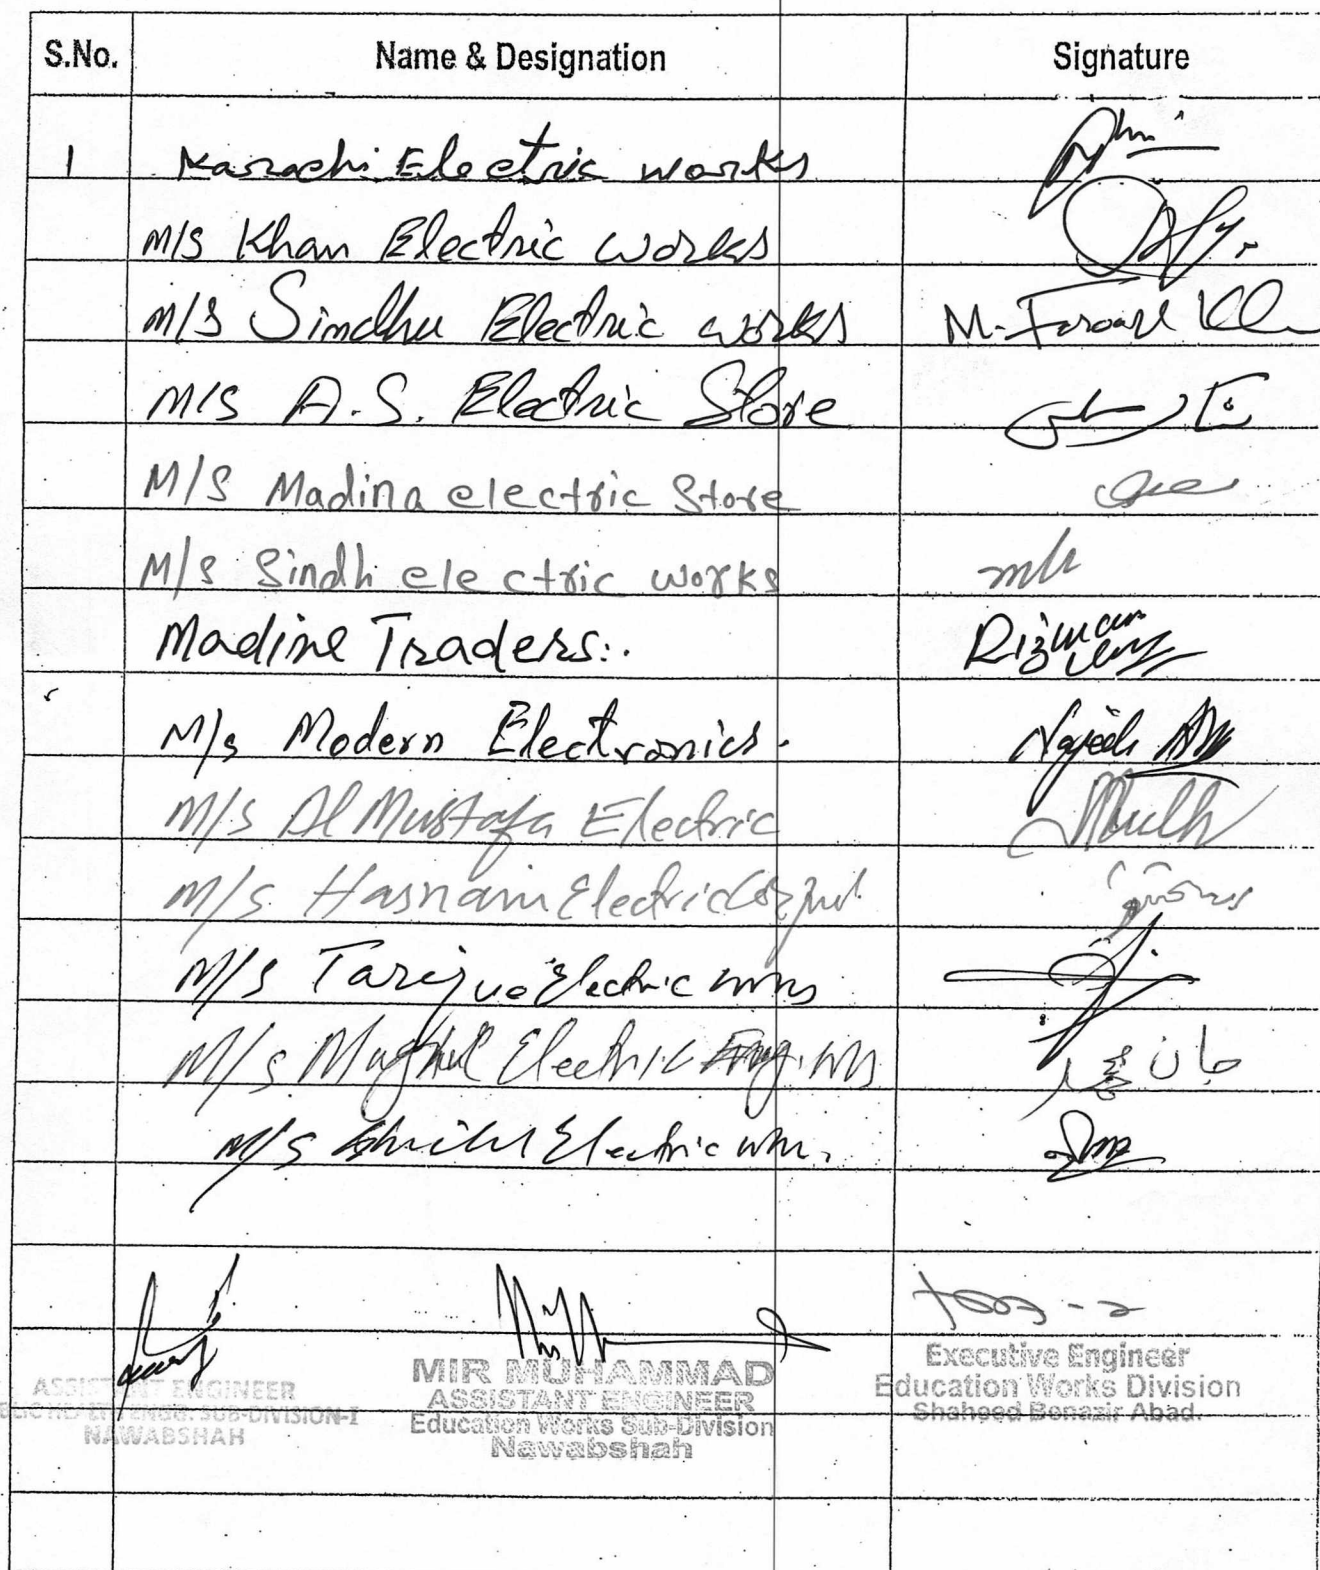 S.No. Name & Designation Signature
1 Karachi Electric works
M/S Khan Electric works
M/S Sindhu Electric works M. Farooq
M/S A.S. Electric Store
M/S Madina electric Store
M/S Sindh electric works
Madine Traders:. Rizwan
M/s Modern Electronics. Najeeb
M/S Al Mustafa Electric
M/S Hasnain Electric
M/S Tariq Electric
M/S Mughul Electric Eng. جان محمد
M/S Electric
ASSISTANT ENGINEER
PUBLIC HEALTH ENGG. SUB-DIVISION-I
NAWABSHAH
MIR MUHAMMAD
ASSISTANT ENGINEER
Education Works Sub-Division
Nawabshah
Executive Engineer
Education Works Division
Shaheed Benazir Abad.